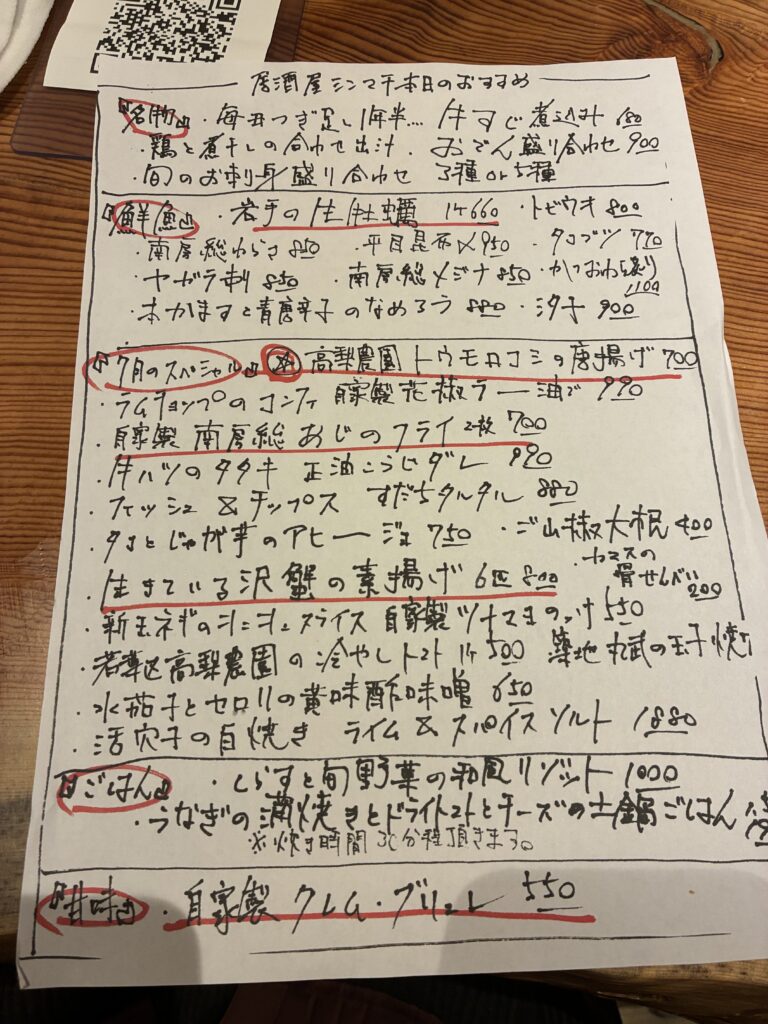 居酒屋シンマチ本日のおすすめ
『名物』・毎日つぎ足し1年半… 牛すじ煮込み
・鶏と煮干しの合わせ出汁.おでん盛り合わせ 900
・旬のお刺身盛り合わせ 3種or5種
『鮮魚』・岩手の生牡蠣 1ケ660 ・トビウオ 800
・南房総わらさ 850 ・平目昆布〆950 ・タコブツ 770
・ヤガラ刺 850 ・南房総メジナ 850 ・かつおわら焼き 1100
・本かますと青唐辛子のなめろう 880 ・汐子 900
『7月のスペシャル』 高梨農園 トウモロコシの唐揚げ 700
・ラムチョップのコンフィ 自家製花椒ラー油で 990
・自家製 南房総 あじのフライ 2枚 700
・牛ハツのタタキ 正油こうじダレ 990
・フィッシュ&チップス すだちタルタル 880
・タコとじゃが芋のアヒージョ 750 ・ジ山椒大根 400
・生きている沢蟹の素揚げ 6匹 800 ・カマスの骨せんべい 200
・新玉ネギのシャシャスライス 自家製ツナマヨのっけ 550
・若葉区高梨農園の冷やしトマト 1ケ 500 築地 丸武の玉子焼き
・水茄子とセロリの黄味酢味噌 650
・活穴子の白焼き ライム&スパイスソルト 1880
『ごはん』・しらすと旬野菜の和風リゾット 1000
・うなぎの蒲焼きとドライトマトとチーズの土鍋ごはん
※炊き時間 30分程頂きます。
『甘味』・自家製 クレム・ブリュレ 550